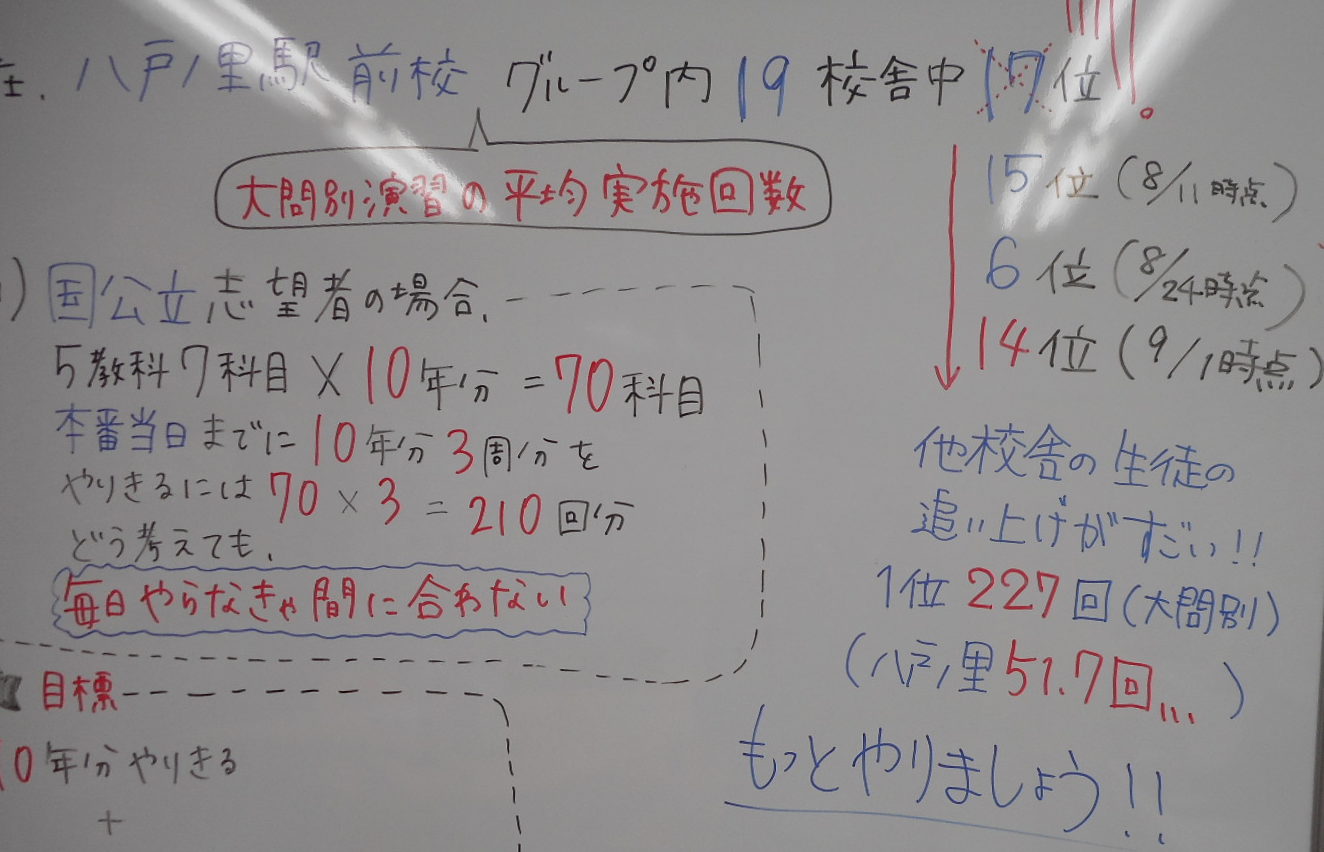 在. 八戸ノ里駅前校 グループ内19校舎中17位!!!!!。
大問別演習の平均実施回数
15位(8/11時点)
6位(8/24時点)
14位(9/1時点)
) 国公立志望者の場合.
5教科7科目×10年分=70科目
本番当日までに10年分3周分を
やりきるには70×3=210回分
どう考えても.
毎日やらなきゃ間に合わない
他校舎の生徒の
追い上げがすごい!!
1位 227回(大問別)
(八戸ノ里51.7回...)
もっとやりましょう!!
目標
10年分やりきる
+